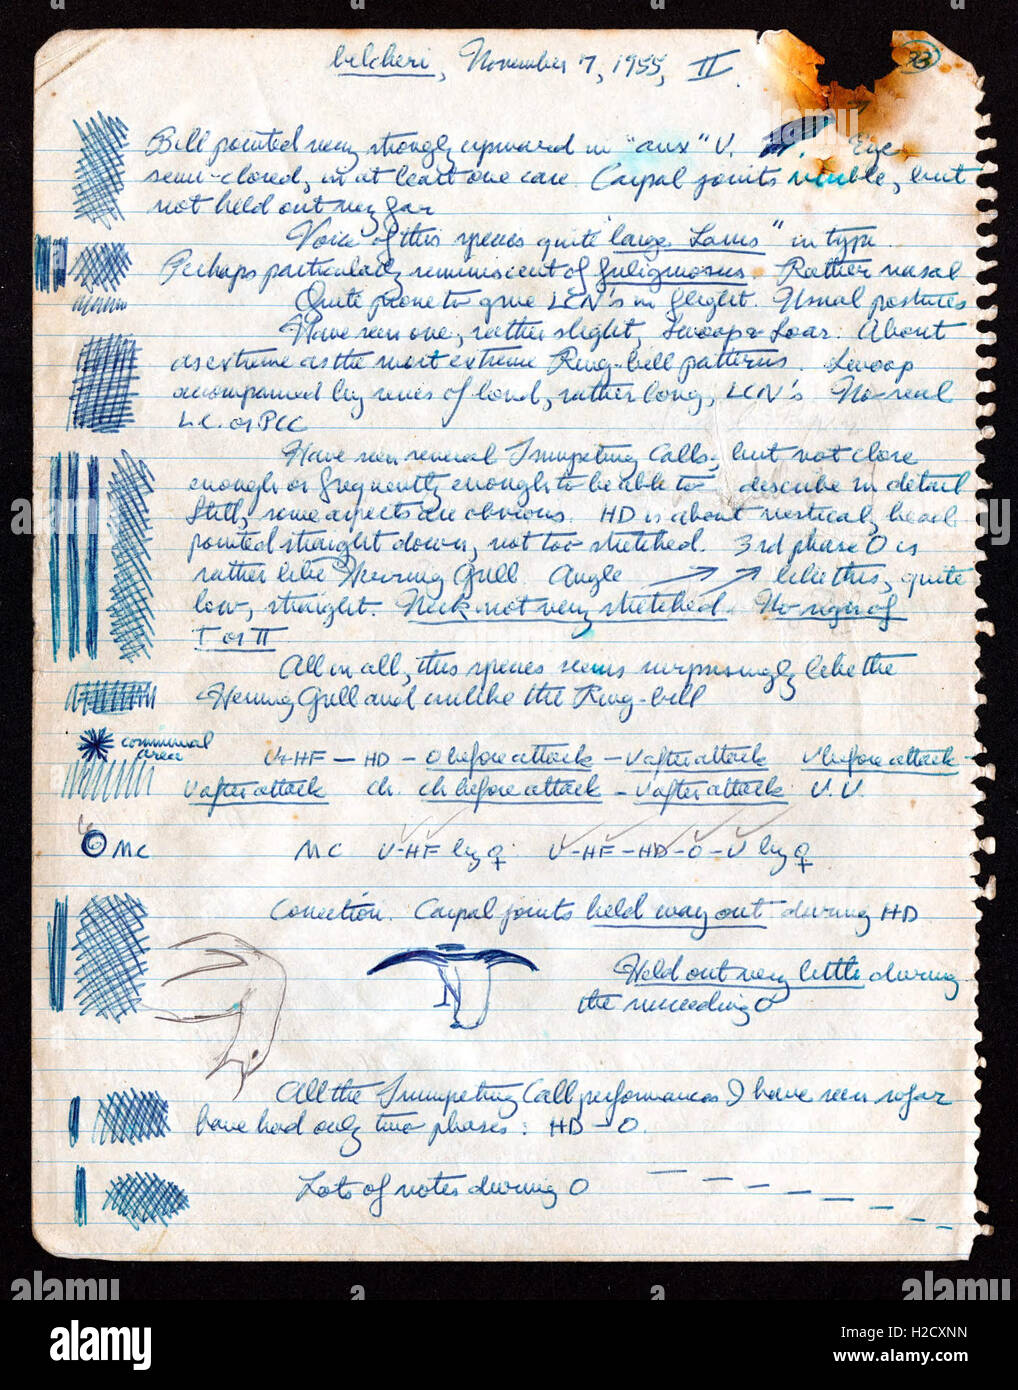 belcheri, November 7, 1955, II.
33
Bill pointed very strongly upward in "aux" V. Eye
semi-closed, in at least one case. Carpal joints visible, but
not held out very far
Voice of this species quite "large Larus" in type.
Perhaps particularly reminiscent of fuliginosus. Rather nasal
Quite prone to give LCN's in flight. Usual postures
Have seen one, rather slight, Swoop & Soar. About
as extreme as the most extreme Ring-bill patterns. Swoop
accompanied by series of loud, rather long, LCN's. No real
L.C. or PCC
Have seen several Trumpeting Calls, but not close
enough or frequently enough to be able to describe in detail
Still, some aspects are obvious. HD is about vertical, head
pointed straight down, not too stretched. 3rd phase O is
rather like Herring Gull. Angle like this, quite
low, straight. Neck not very stretched. No signs of
I or II
All in all, this species seems surprisingly like the
Herring Gull and unlike the Ring-bill
communal
area
V-HF - HD - O before attack - V after attack V before attack -
V after attack ch. ch before attack - V after attack V. V.
MC MC V-HF by ♀ V-HF-HD-O-V by ♀
Correction. Carpal joints held way out during HD
Held out very little during
the succeeding O
All the Trumpeting Call performances I have seen so far
have had only two phases: HD - O.
Lots of notes during O
alamy
H2CXNN
www.alamy.com